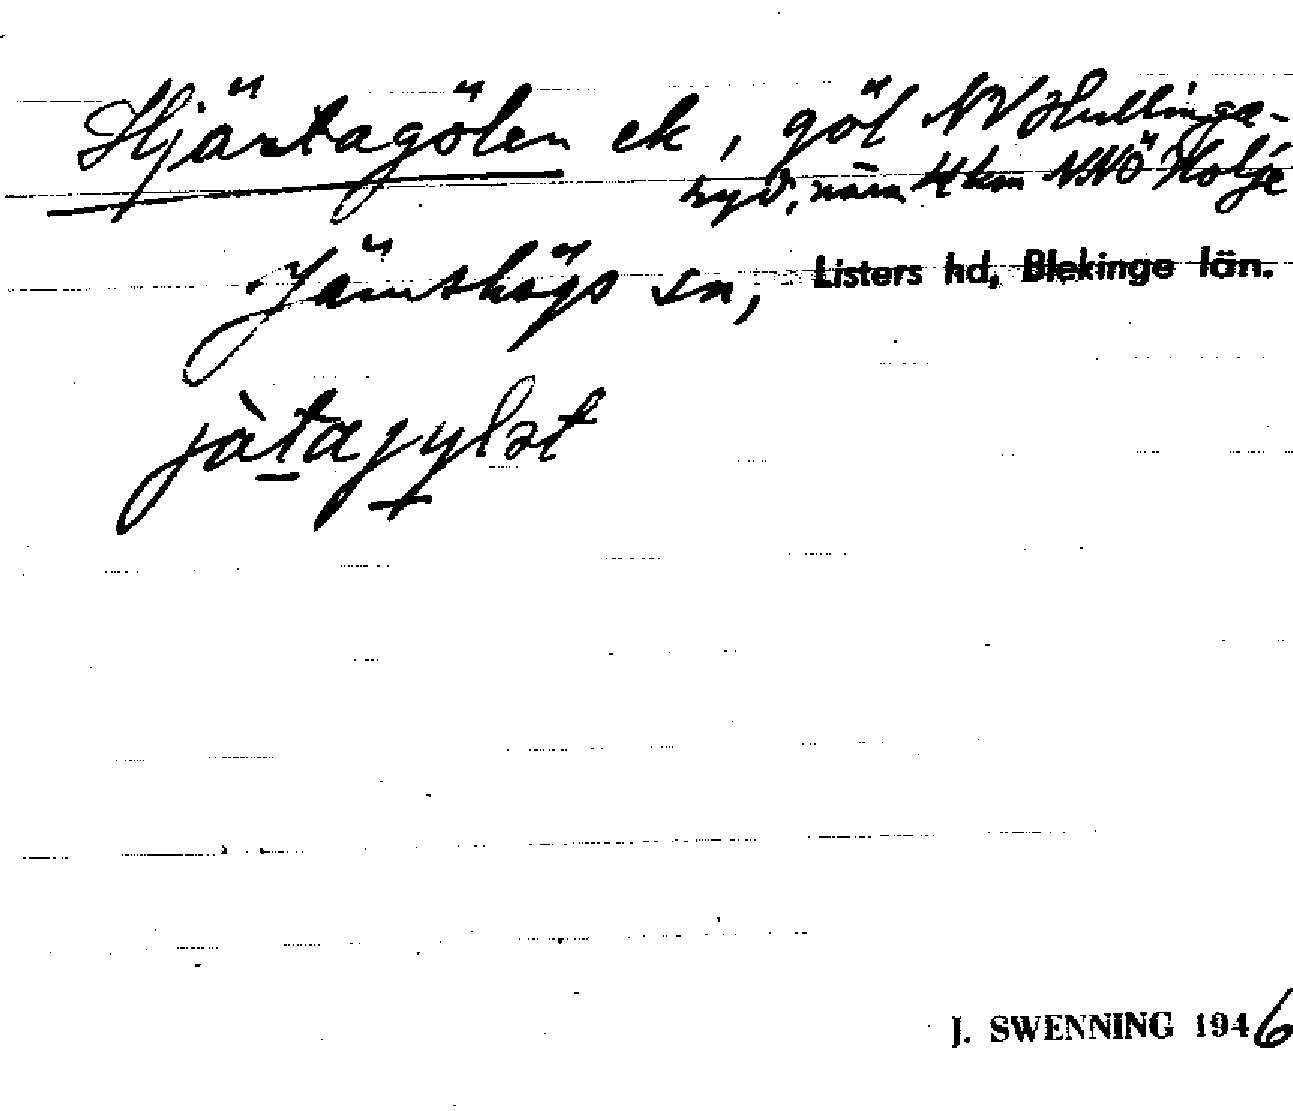 Hjärtagölen ek, göl NV Hullinga-
ryd, näm 4 km NNÖ Holje
Jämshögs sn, Listers hd, Blekinge län.
jàtagylət
J. SWENNING 1946